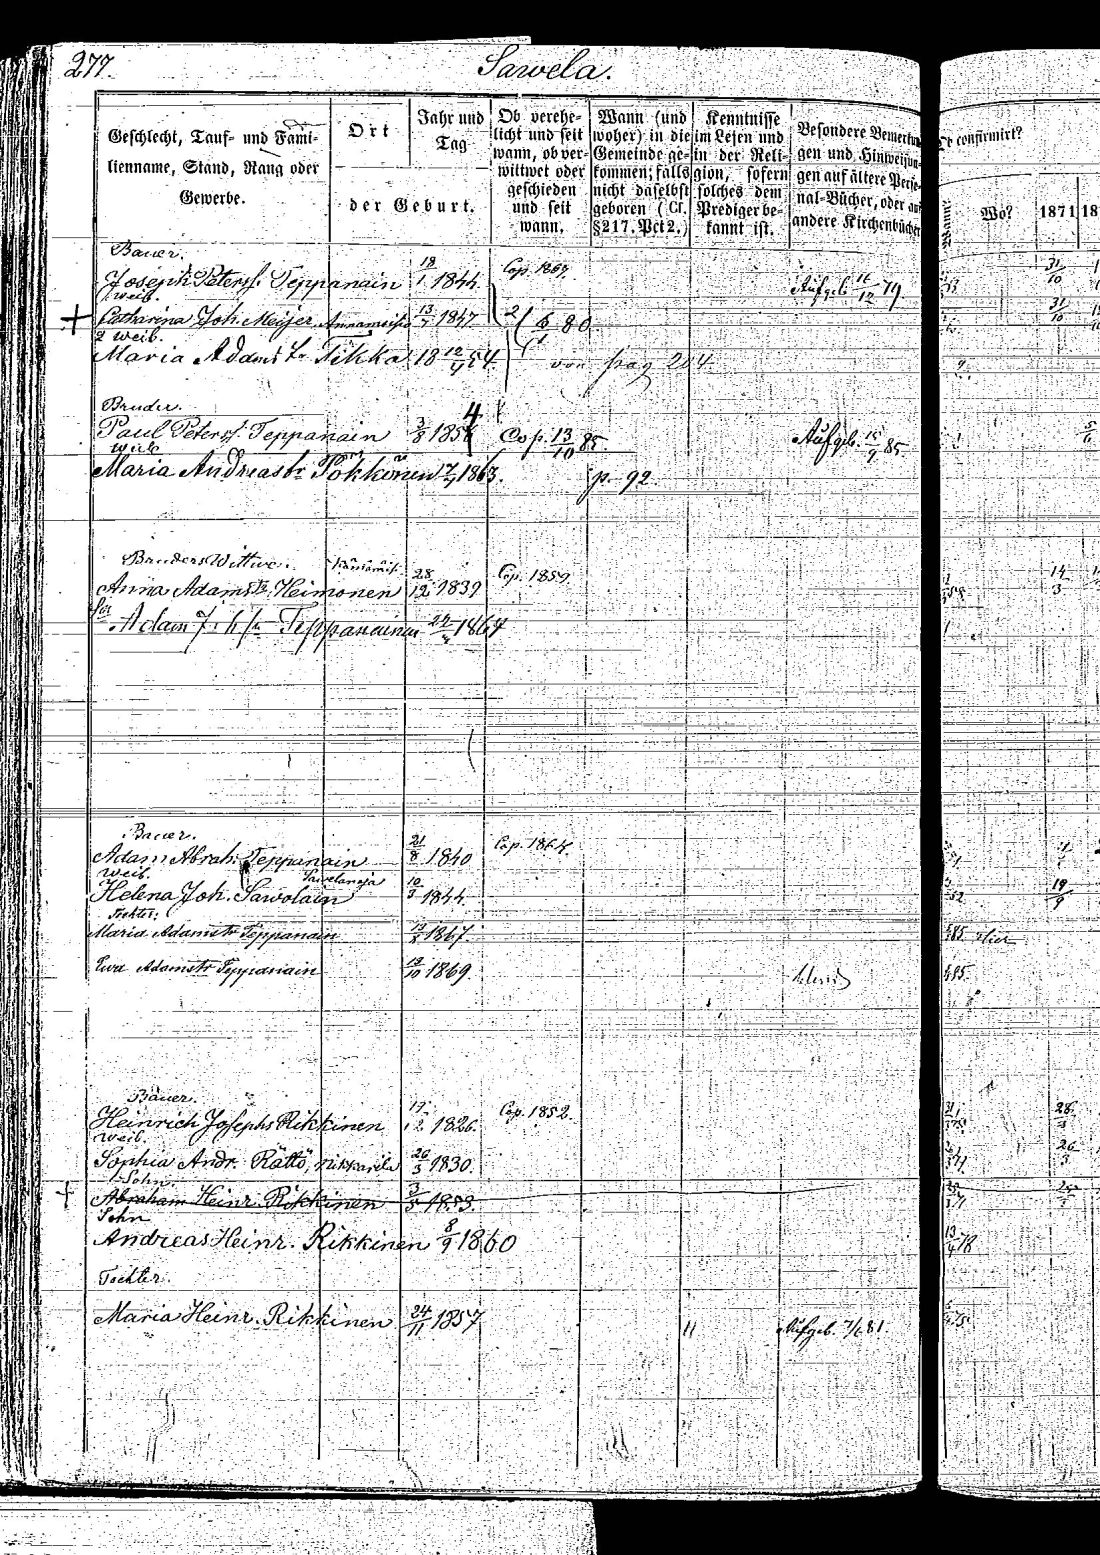 277.
Sawela.
Geschlecht, Tauf- und Fami-
lienname, Stand, Rang oder
Gewerbe.
Ort
Jahr und
Tag
der Geburt.
Ob verehe-
licht und seit
wann, ob ver-
wittwet oder
geschieden
und seit
wann.
Wann (und
woher) in die
Gemeinde ge-
kommen; falls
nicht daselbst
geboren (Cf.
§217. Pct 2.)
Kenntnisse
im Lesen und
in der Reli-
gion, sofern
solches dem
Prediger be-
kannt ist.
Besondere Bemerkun-
gen und Hinweisun-
gen auf ältere Perso-
nal-Bücher, oder auf
andere Kirchenbücher
Ob confirmirt?
Wann?
Wo?
1871
Bauer.
Joseph Peterss. Teppanain 18/1 1844. Cop. 1869 Aufgeb. 16/12 79 31/10
weib.
Catharina Joh. Meijer 13/7 1847 31/10
2 weib.
Maria Adams tr Tikka 18 12/4 54. von pag 204
Bruder.
Paul Peterss. Teppanain 3/8 1854 Cop. 13/10 85. Aufgeb. 15/9 85
weib
Maria Andreastr Pökkönen 17/4 1863. p. 92
Bruders Wittwe.
Anna Adamstr. Heimonen 28/12 1839 Cop. 1859 14/3
Adam Teppanainen 1864
Bauer.
Adam Abrah. Teppanain 21/8 1840 Cop. 1864.
weib.
Helena Joh. Sawolain 10/3 1844. 19/9
Tochter:
Maria Adamstr Teppanain 1867.
Ewa Adamstr Teppanain 13/10 1869.
Bauer.
Heinrich Josephs Rikkinen 17/12 1826. Cop. 1852. 26
weib.
Sophia Andr. Rättö, Rikkarila 26/3 1830. 26/3
Sohn.
Abraham Heinr. Rikkinen 3/5 1853.
Sohn
Andreas Heinr. Rikkinen 8/9 1860 13/4 78
Tochter.
Maria Heinr. Rikkinen 24/11 1857 Aufgeb. 7/6 81.